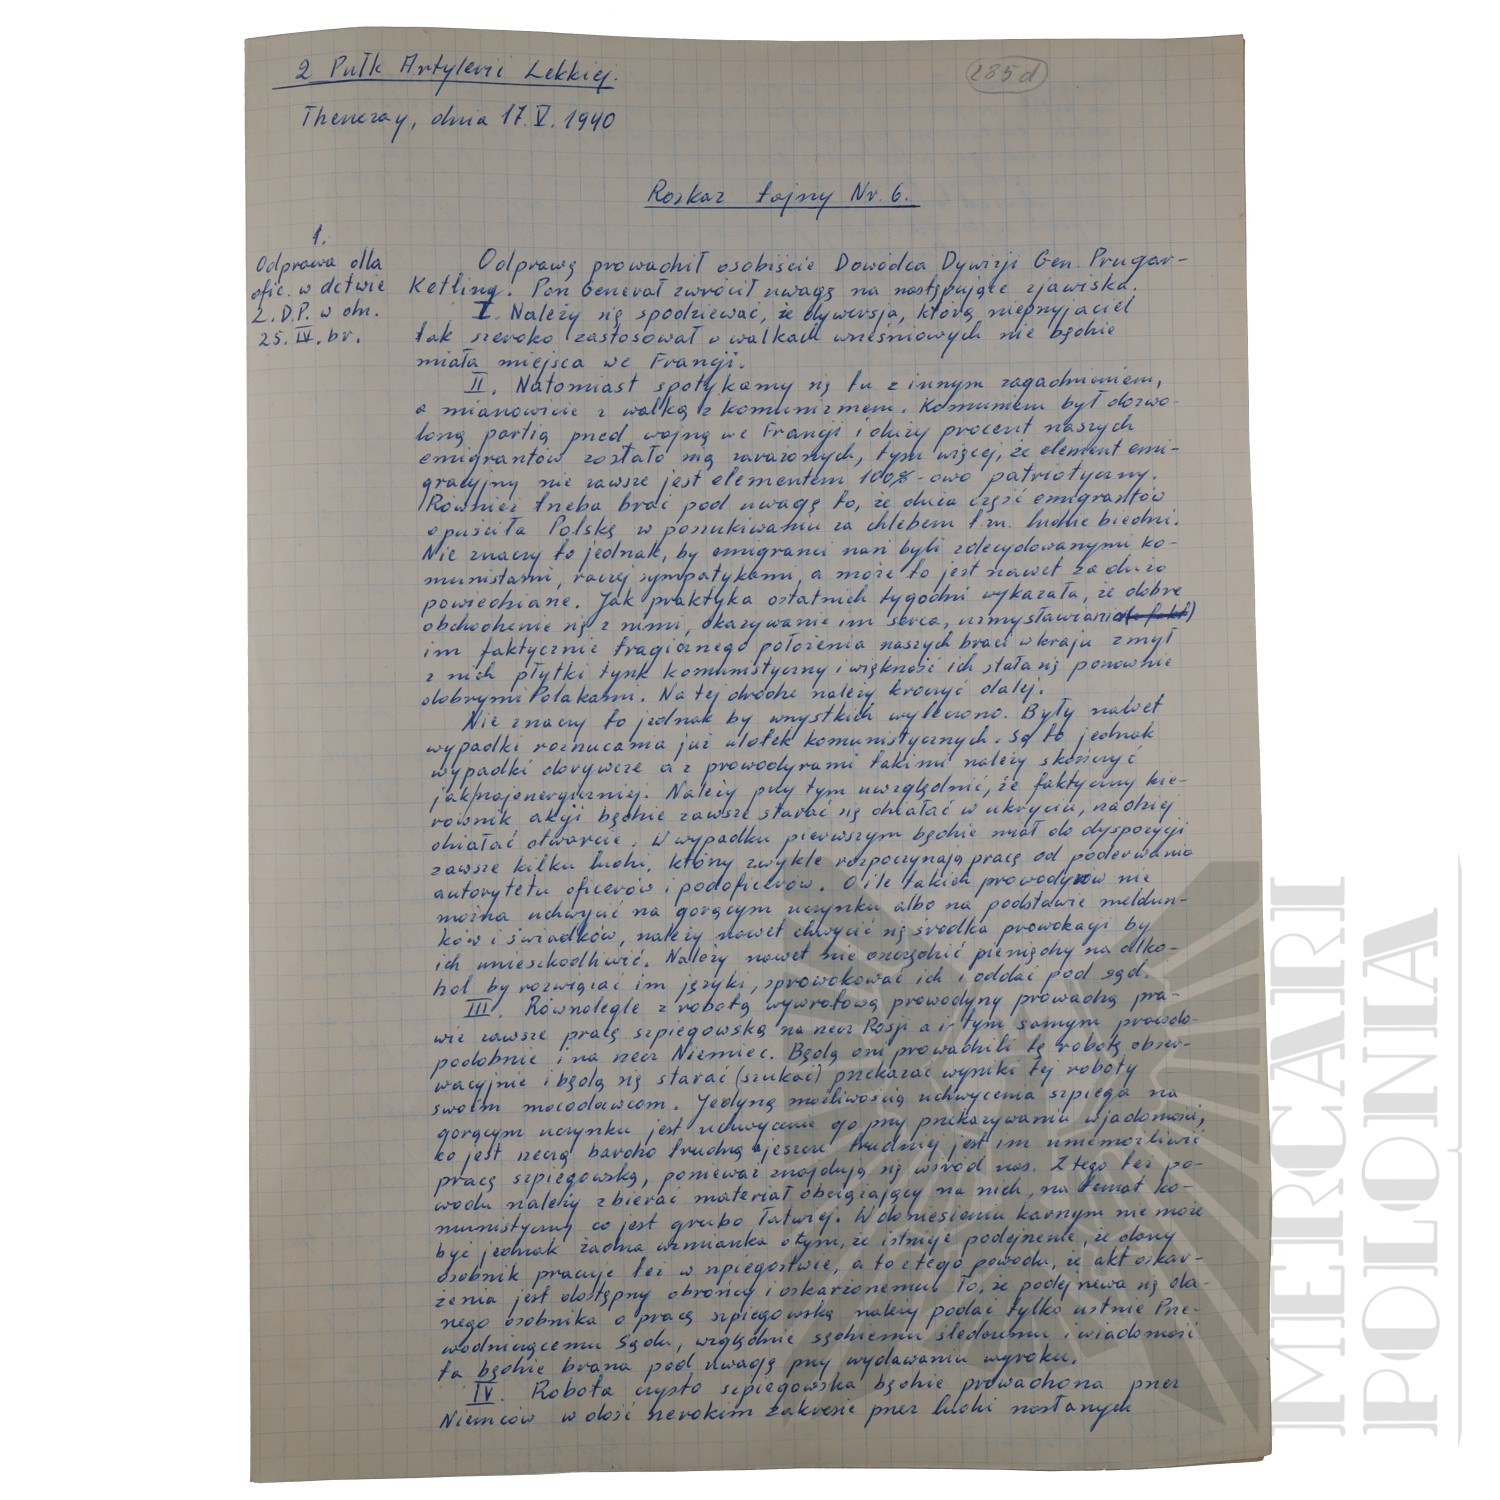 2 Pułk Artylerii Lekkiej.
285d
Thenezay, dnia 17.V.1940
Rozkaz tajny Nr. 6.
1.
Odprawa dla
ofic. w dctwie
2.D.P. w dn.
25.IV.br.
Odprawę prowadził osobiście Dowódca Dywizji Gen. Prugar-
Ketling. Pan Generał zwrócił uwagę na następujące zjawiska.
I. Należy się spodziewać, że dywersja, którą nieprzyjaciel
tak szeroko zastosował w walkach wrześniowych nie będzie
miała miejsca we Francji.
II. Natomiast spotykamy się tu z innym zagadnieniem,
a mianowicie z walką z komunizmem. Komunizm był dozwo-
loną partią przed wojną we Francji i duży procent naszych
emigrantów zostało nią zarażonych, tym więcej, że element emi-
gracyjny nie zawsze jest elementem 100%-owo patriotyczny.
Również trzeba brać pod uwagę to, że duża część emigrantów
opuściła Polskę w poszukiwaniu za chlebem t.zn. ludzie biedni.
Nie znaczy to jednak, by emigranci nasi byli zdecydowanymi ko-
munistami, raczej sympatykami, a może to jest nawet za dużo
powiedziane. Jak praktyka ostatnich tygodni wykazała, że dobre
obchodzenie się z nimi, okazywanie im serca, uzmysławianie
im faktycznie tragicznego położenia naszych braci w kraju zmył
z nich płytki tynk komunistyczny i większość ich stała się ponownie
dobrymi Polakami. Na tej drodze należy kroczyć dalej.
Nie znaczy to jednak by wszystkich wyleczono. Były nawet
wypadki rozrzucania już ulotek komunistycznych. Są to jednak
wypadki dorywcze a z prowodyrami takimi należy skończyć
jak najenergiczniej. Należy przy tym uwzględnić, że faktyczny kie-
rownik akcji będzie zawsze starać się działać w ukryciu, rzadziej
działać otwarcie. W wypadku pierwszym będzie miał do dyspozycji
zawsze kilku ludzi, którzy zwykle rozpoczynają pracę od poderwania
autorytetu oficerów i podoficerów. O ile takich prowodyrów nie
można uchwycić na gorącym uczynku albo na podstawie meldun-
ków i świadków, należy nawet chwycić się środka prowokacji by
ich unieszkodliwić. Należy nawet nie oszczędzić pieniędzy na alko-
hol by rozwiązać im języki, sprowokować ich i oddać pod sąd.
III. Równolegle z robotą wywrotową prowodyrzy prowadzą pra-
wie zawsze pracę szpiegowską na rzecz Rosji a i tym samym prawdo-
podobnie i na rzecz Niemiec. Będą oni prowadzili tę robotę obser-
wacyjnie i będą się starać (szukać) przekazać wyniki tej roboty
swoim mocodawcom. Jedyną możliwością uchwycenia szpiega na
gorącym uczynku jest uchwycenie go przy przekazywaniu wiadomości,
co jest rzeczą bardzo trudną a jeszcze trudniej jest im uniemożliwić
pracę szpiegowską, ponieważ znajdują się wśród nas. Z tego też po-
wodu należy zbierać materiał obciążający na nich, na temat ko-
munistyczny co jest grubo łatwiej. W doniesieniu karnym nie może
być jednak żadna wzmianka o tym, że istnieje podejrzenie, że dany
osobnik pracuje też w szpiegostwie, a to z tego powodu, że akt oskar-
żenia jest dostępny obrońcy i oskarżonemu. To, że podejrzewa się da-
nego osobnika o pracę szpiegowską należy podać tylko ustnie Prze-
wodniczącemu Sądu, względnie sędziemu śledczemu i wiadomość
ta będzie brana pod uwagę przy wydawaniu wyroku.
IV. Robota czysto szpiegowska będzie prowadzona przez
Niemców w dość szerokim zakresie przez ludzi nasłanych
MERCARI
POLONIA